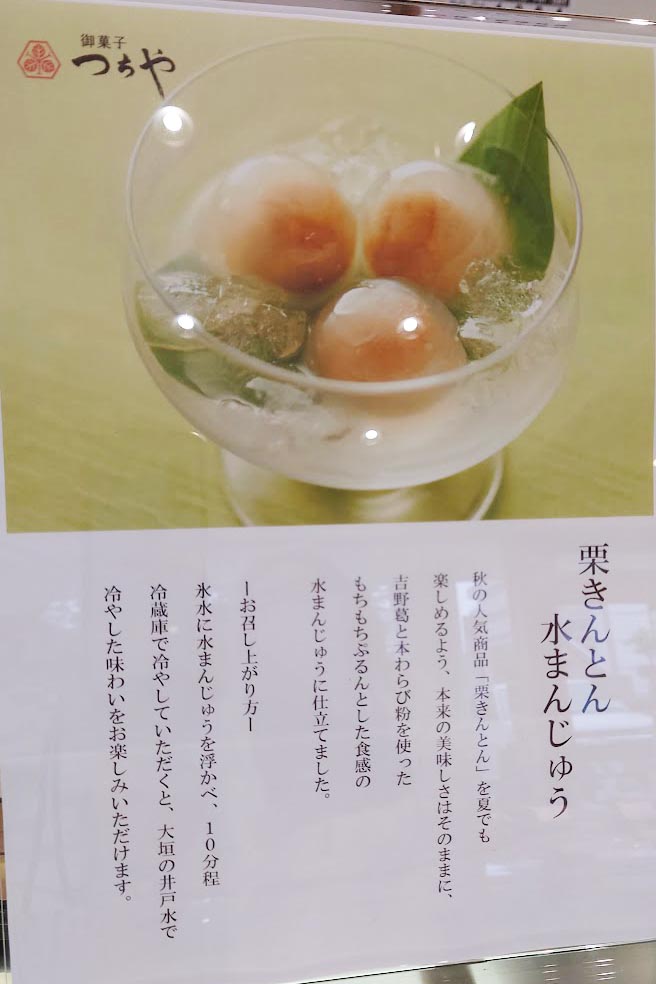 御菓子
つちや
栗きんとん
水まんじゅう
秋の人気商品「栗きんとん」を夏でも
楽しめるよう、本来の美味しさはそのままに、
吉野葛と本わらび粉を使った
もちもちぷるんとした食感の
水まんじゅうに仕立てました。
ーお召し上がり方ー
氷水に水まんじゅうを浮かべ、10分程
冷蔵庫で冷やしていただくと、大垣の井戸水で
冷やした味わいをお楽しみいただけます。